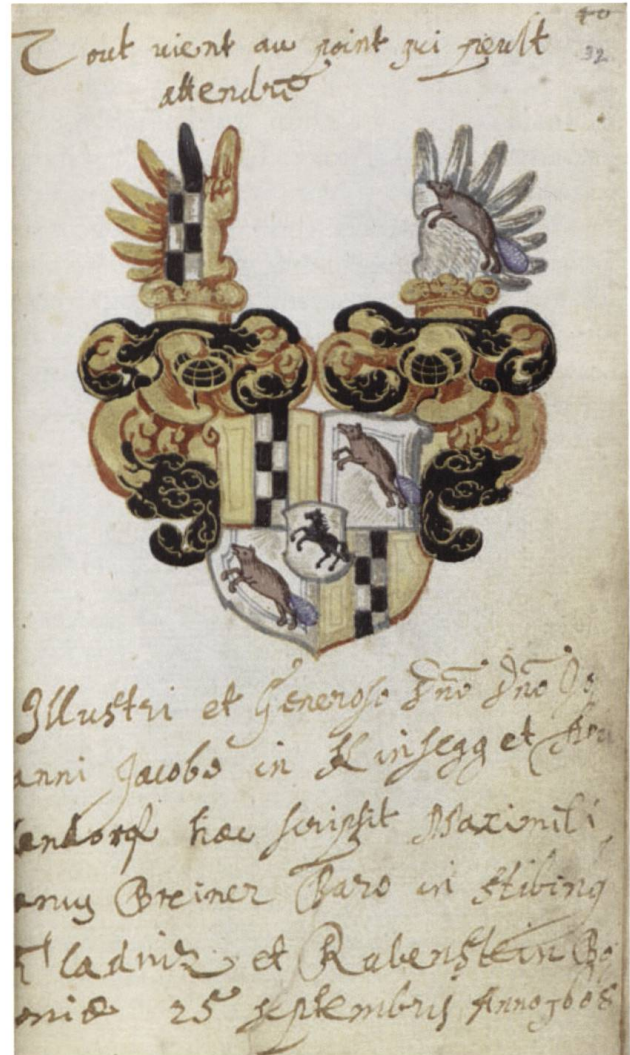 40
32
Tout vient au point qui peult
attendre
Illustri et Generoso Dno Dno Jo
anni Jacobo in Kinsegg et Au
lendorf hæc scripsit Maximili
anus Breiner Baro in Stibing
Fladniz et Rabenstein Bo
noniæ 25 septembris Anno 1608